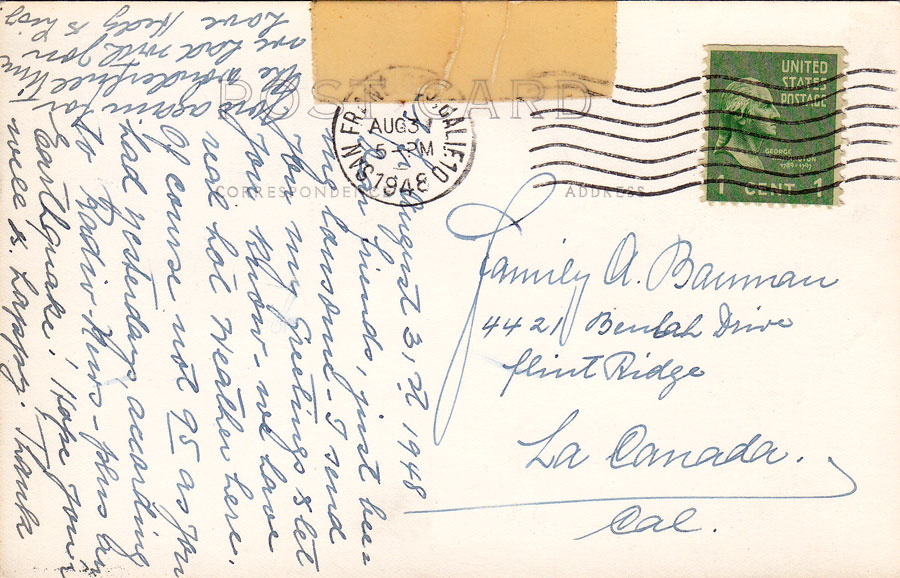 POST CARD
CORRESPONDENCE
ADDRESS
SAN FRAN
CALIF. 10
AUG 31
5 - PM
1948
UNITED
STATES
POSTAGE
GEORGE
WASHINGTON
1789-1797
1 CENT 1
August 31, 1948
friends, just
I send
You my Greetings & let
You know - we have
real hot weather here.
Of course not 95 as You
had yesterday according
to Radio-News - plus an
Earthquake! Hope You
were s. happy. Thanks
again for
the wonderfull time
we had with You
Love
Family A. Bauman
4421 Beulah Drive
Flint Ridge
La Canada.
Cal.